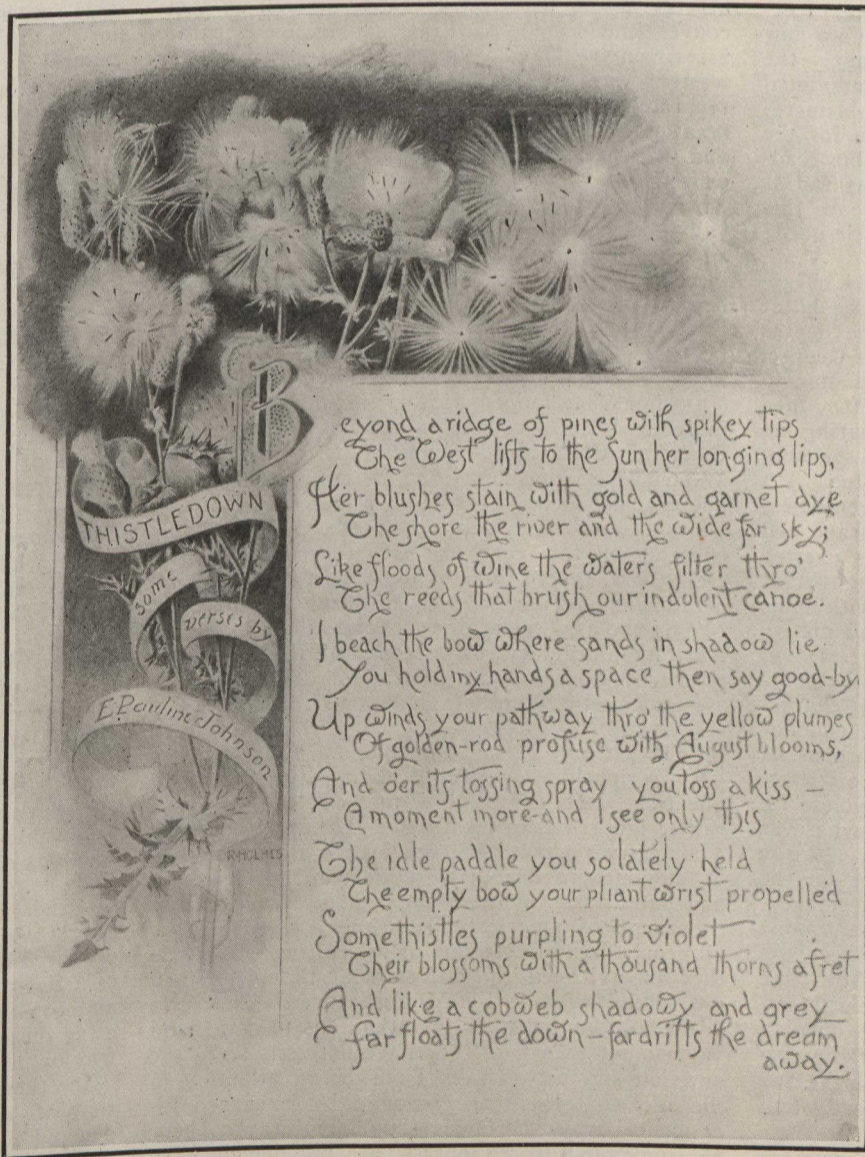 THISTLEDOWN
some
verses by
E. Pauline Johnson
R. HOLMES
Beyond a ridge of pines with spikey tips
The West lifts to the Sun her longing lips.
Her blushes stain with gold and garnet dye
The shore the river and the wide far sky;
Like floods of wine the waters filter thro'
The reeds that brush our indolent canoe.
I beach the bow where sands in shadow lie
You hold my hands a space then say good-by.
Up winds your pathway thro' the yellow plumes
Of golden-rod profuse with August blooms,
And o'er its tossing spray you toss a kiss –
A moment more-and I see only this
The idle paddle you so lately held
The empty bow your pliant wrist propelled
Some thistles purpling to violet
Their blossoms with a thousand thorns afret
And like a cobweb shadowy and grey
far floats the down – far drifts the dream
away.